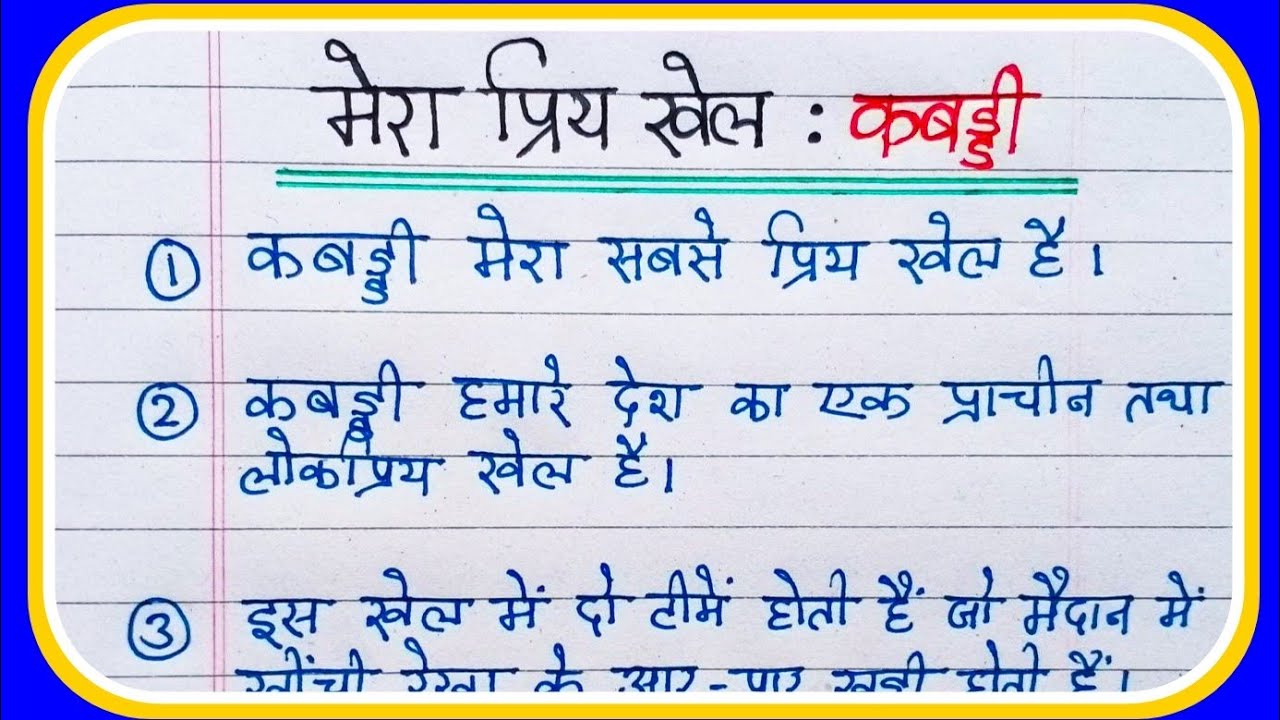 मेरा प्रिय खेल : कबड्डी
① कबड्डी मेरा सबसे प्रिय खेल है।
② कबड्डी हमारे देश का एक प्राचीन तथा
लोकप्रिय खेल है।
③ इस खेल में दो टीमें होती हैं जो मैदान में
खींची रेखा के आर-पार खड़ी होती हैं।